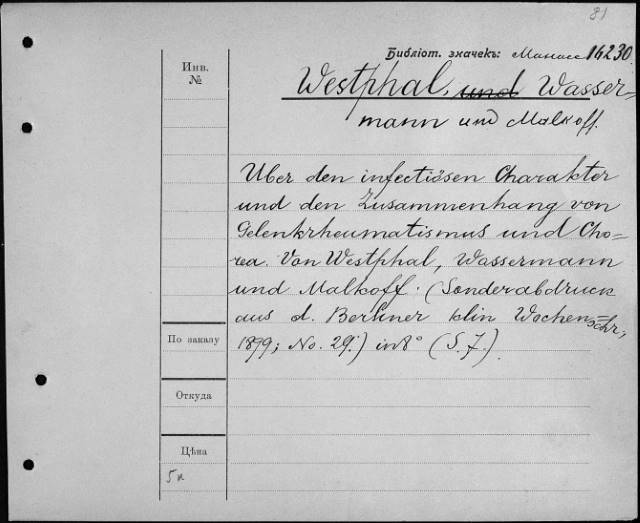 81
Библіот. значекъ: Манасс 14230.
Инв.
№
Westphal, und Wasser=
mann und Malkoff.
Uber den infectiösen Charakter
und den Zusammenhang von
Gelenkrheumatismus und Cho-
rea. Von Westphal, Wassermann
und Malkoff. (Sonderabdruck
aus d. Berliner klin Wochen=schr,
1899; No. 29.) in 8° (S. 7.)
По заказу
Откуда
Цѣна
5к